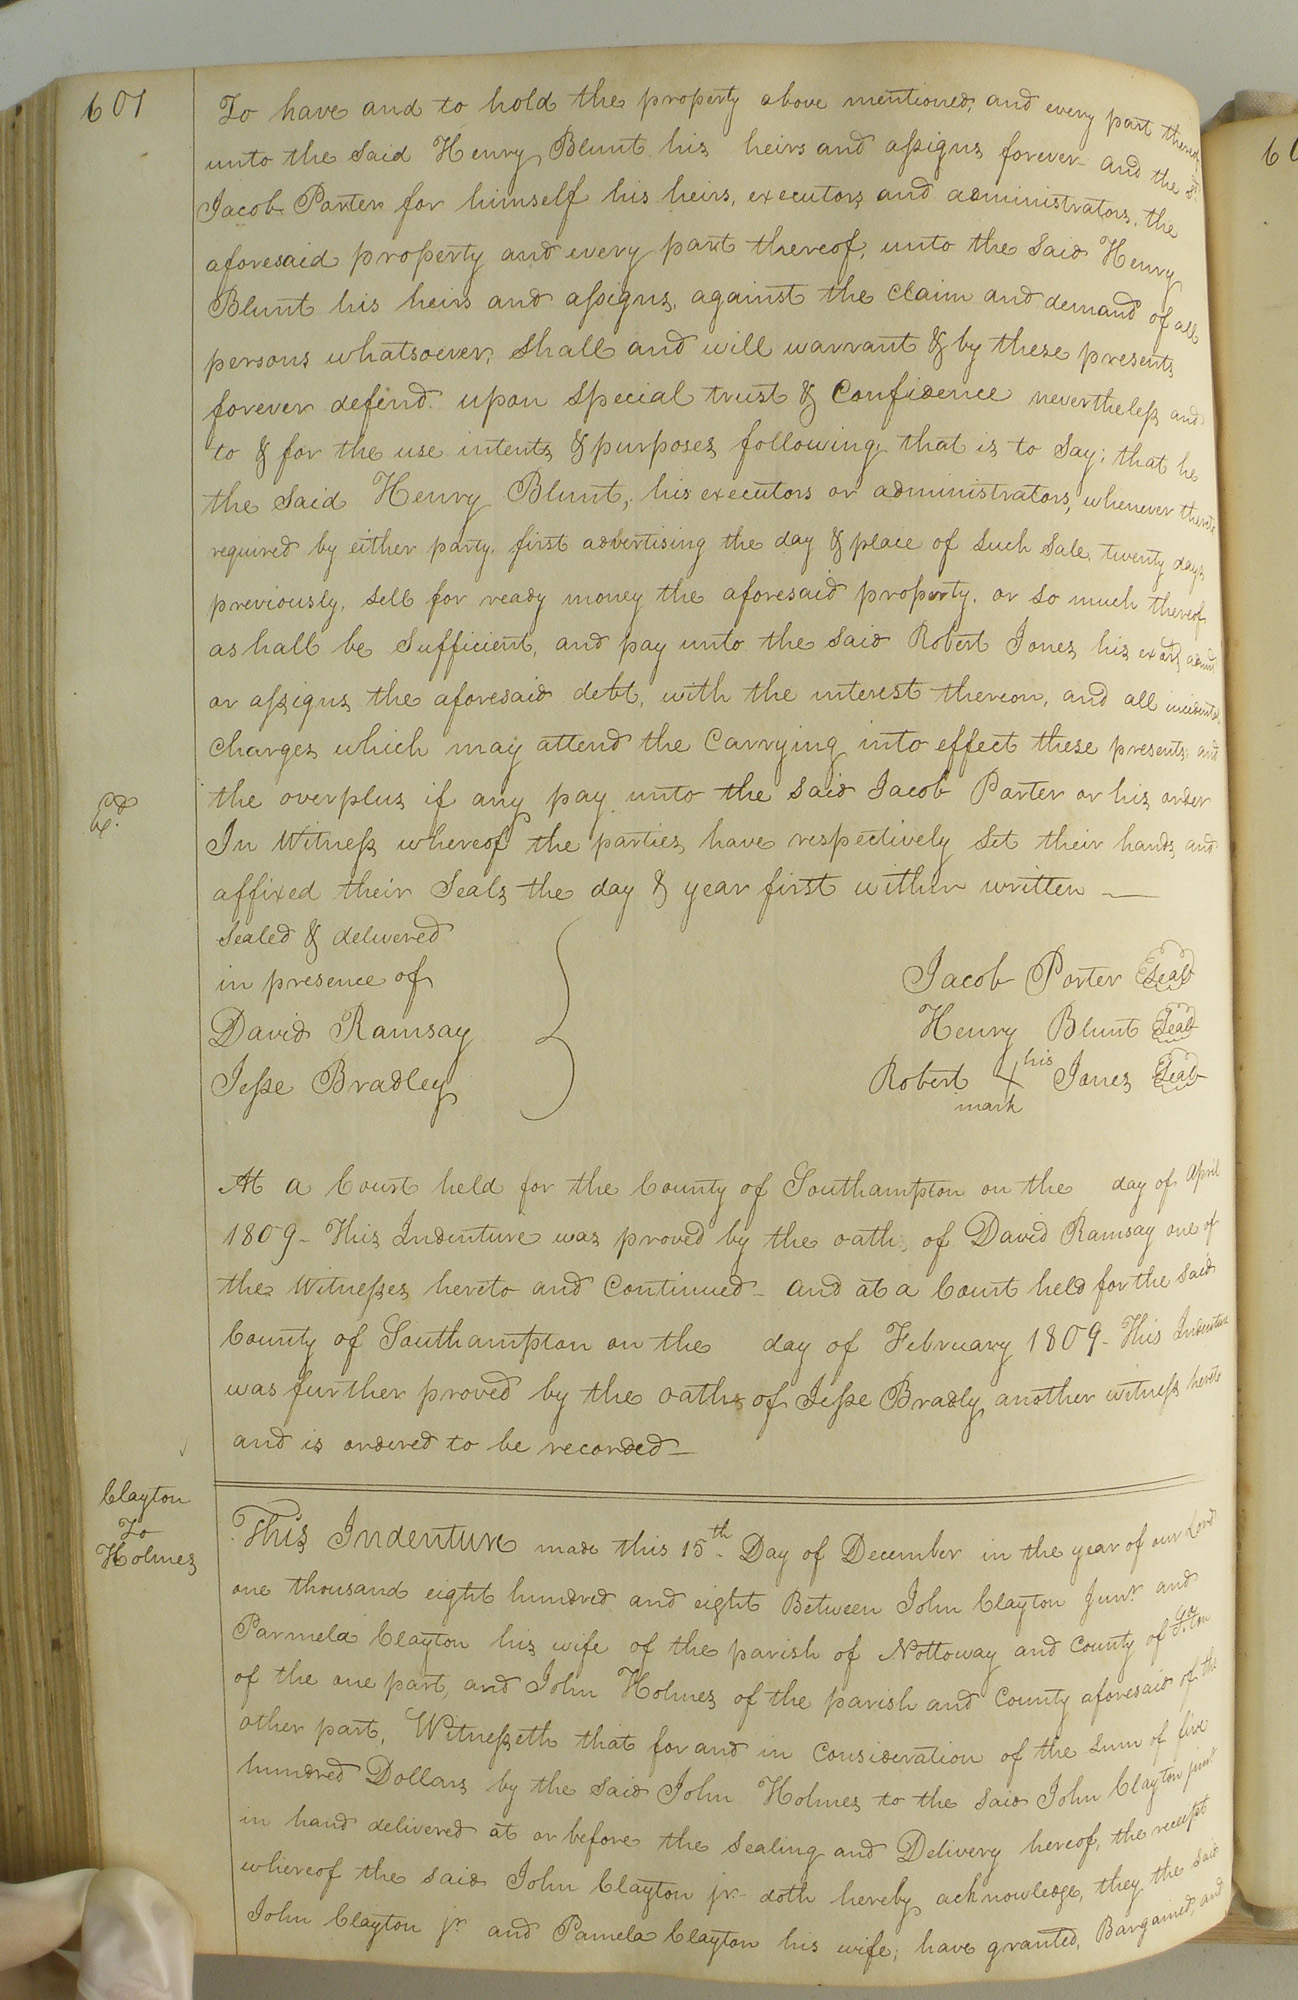 601
To have and to hold the property above mentioned, and every part thereof
unto the said Henry Blunt his heirs and assigns forever and the sd.
Jacob Porter for himself his heirs, executors and administrators, the
aforesaid property and every part thereof, unto the said Henry
Blunt his heirs and assigns, against the claim and demand of all
persons whatsoever, shall and will warrant & by these presents
forever defend upon special trust & confidence nevertheless and
to & for the use intents & purposes following that is to say; that he
the said Henry Blunt, his executors or administrators, whenever thereto
required by either party, first advertising the day & place of such sale, twenty days
previously, sell for ready money the aforesaid property, or so much thereof
as hall be sufficient, and pay unto the said Robert Jones his exors admrs
or assigns the aforesaid debt, with the interest thereon, and all incidental
charges which may attend the carrying into effect these presents, and
the overplus if any pay unto the said Jacob Porter or his order
In Witness whereof the parties have respectively set their hands and
affixed their seals the day & year first within written —
Sealed & delivered
in presence of
David Ramsay
Jesse Bradley
Jacob Porter Seal
Henry Blunt Seal
Robert X his Jones Seal
mark
At a Court held for the County of Southampton on the day of April
1809 - This Indenture was proved by the oath of David Ramsay one of
the Witnesses hereto and continued - and at a Court held for the said
County of Southampton on the day of February 1809 - This Indenture
was further proved by the oaths of Jesse Bradly another witness hereto
and is ordered to be recorded —
Clayton
To
Holmes
This Indenture made this 15th Day of December in the year of our Lord
one thousand eight hundred and eight Between John Clayton Junr and
Parmela Clayton his wife of the parish of Nottoway and County of
of the one part, and John Holmes of the parish and County aforesaid of the
other part, Witnesseth that for and in consideration of the sum of five
hundred Dollars by the said John Holmes to the said John Clayton junr
in hand delivered at or before the sealing and Delivery hereof, the receipt
whereof the said John Clayton jr doth hereby acknowledge, they the said
John Clayton jr and Pamela Clayton his wife, have granted, Bargained, and